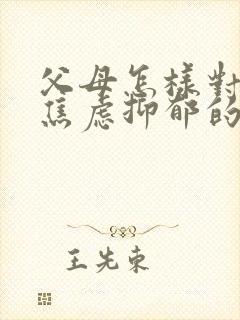 父母怎樣對
焦慮抑郁的
王先東